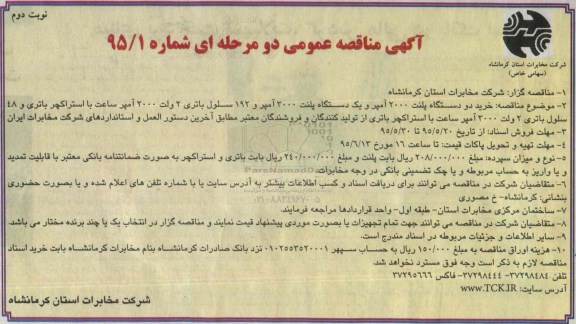 نوبت دوم
شرکت مخابرات استان کرمانشاه
(سهامی خاص)
آگهی مناقصه عمومی دو مرحله ای شماره ۹۵/۱
۱- مناقصه گزار: شرکت مخابرات استان کرمانشاه
۲- موضوع مناقصه: خرید دو دستگاه پلنت ۲۰۰۰ آمپر و یک دستگاه پلنت ۳۰۰۰ آمپر و ۱۹۲ سلول باتری ۲ ولت ۳۰۰۰ آمپر ساعت با استراکچر باتری و ۴۸
سلول باتری ۲ ولت ۳۰۰۰ آمپر ساعت با استراکچر باتری از تولید کنندگان و فروشندگان معتبر مطابق آخرین دستور العمل و استانداردهای شرکت مخابرات ایران
۳- مهلت فروش اسناد: از تاریخ ۹۵/۵/۲۰ تا ۹۵/۵/۳۰
۴- مهلت تهیه و تحویل پاکات قیمت: تا ساعت ۱۶ مورخ ۹۵/۶/۱۳
۵- نوع و میزان سپرده: مبلغ ۲۰۸/۰۰۰/۰۰۰ ریال بابت پلنت و مبلغ ۲۴۰/۰۰۰/۰۰۰ ریال بابت باتری و استراکچر به صورت ضمانتنامه بانکی معتبر با قابلیت تمدید
و یا واریز به حساب مربوطه و یا چک تضمینی بانکی در وجه مخابرات
۶- متقاضیان شرکت در مناقصه می توانند برای دریافت اسناد و کسب اطلاعات بیشتر به آدرس سایت یا با شماره تلفن های اعلام شده و یا بصورت حضوری
بنشانی: کرمانشاه- خ مصوری
۷- ساختمان مرکزی مخابرات استان- طبقه اول- واحد قراردادها مراجعه فرمایند.
۸- متقاضیان شرکت در مناقصه می توانند جهت تمام تجهیزات یا بصورت موردی پیشنهاد قیمت نمایند و مناقصه گزار در انتخاب یک یا چند برنده مختار می باشد.
۹- سایر اطلاعات و جزئیات مربوطه در اسناد مندرج است.
۱۰- هزینه اوراق مناقصه به مبلغ ۱۵۰/۰۰۰ ریال به حساب سپهر ۰۱۰۲۵۵۳۵۲۰۰۰۱ نزد بانک صادرات کرمانشاه بنام مخابرات کرمانشاه بابت خرید اسناد
مناقصه لازم به ذکر است وجه فوق مسترد نخواهد شد.
تلفن ۳۷۲۹۸۴۸۴- ۳۷۲۹۸۴۴۴- فاکس ۳۷۲۹۵۶۶۶
آدرس سایت: WWW.TCK.IR
شرکت مخابرات استان کرمانشاه